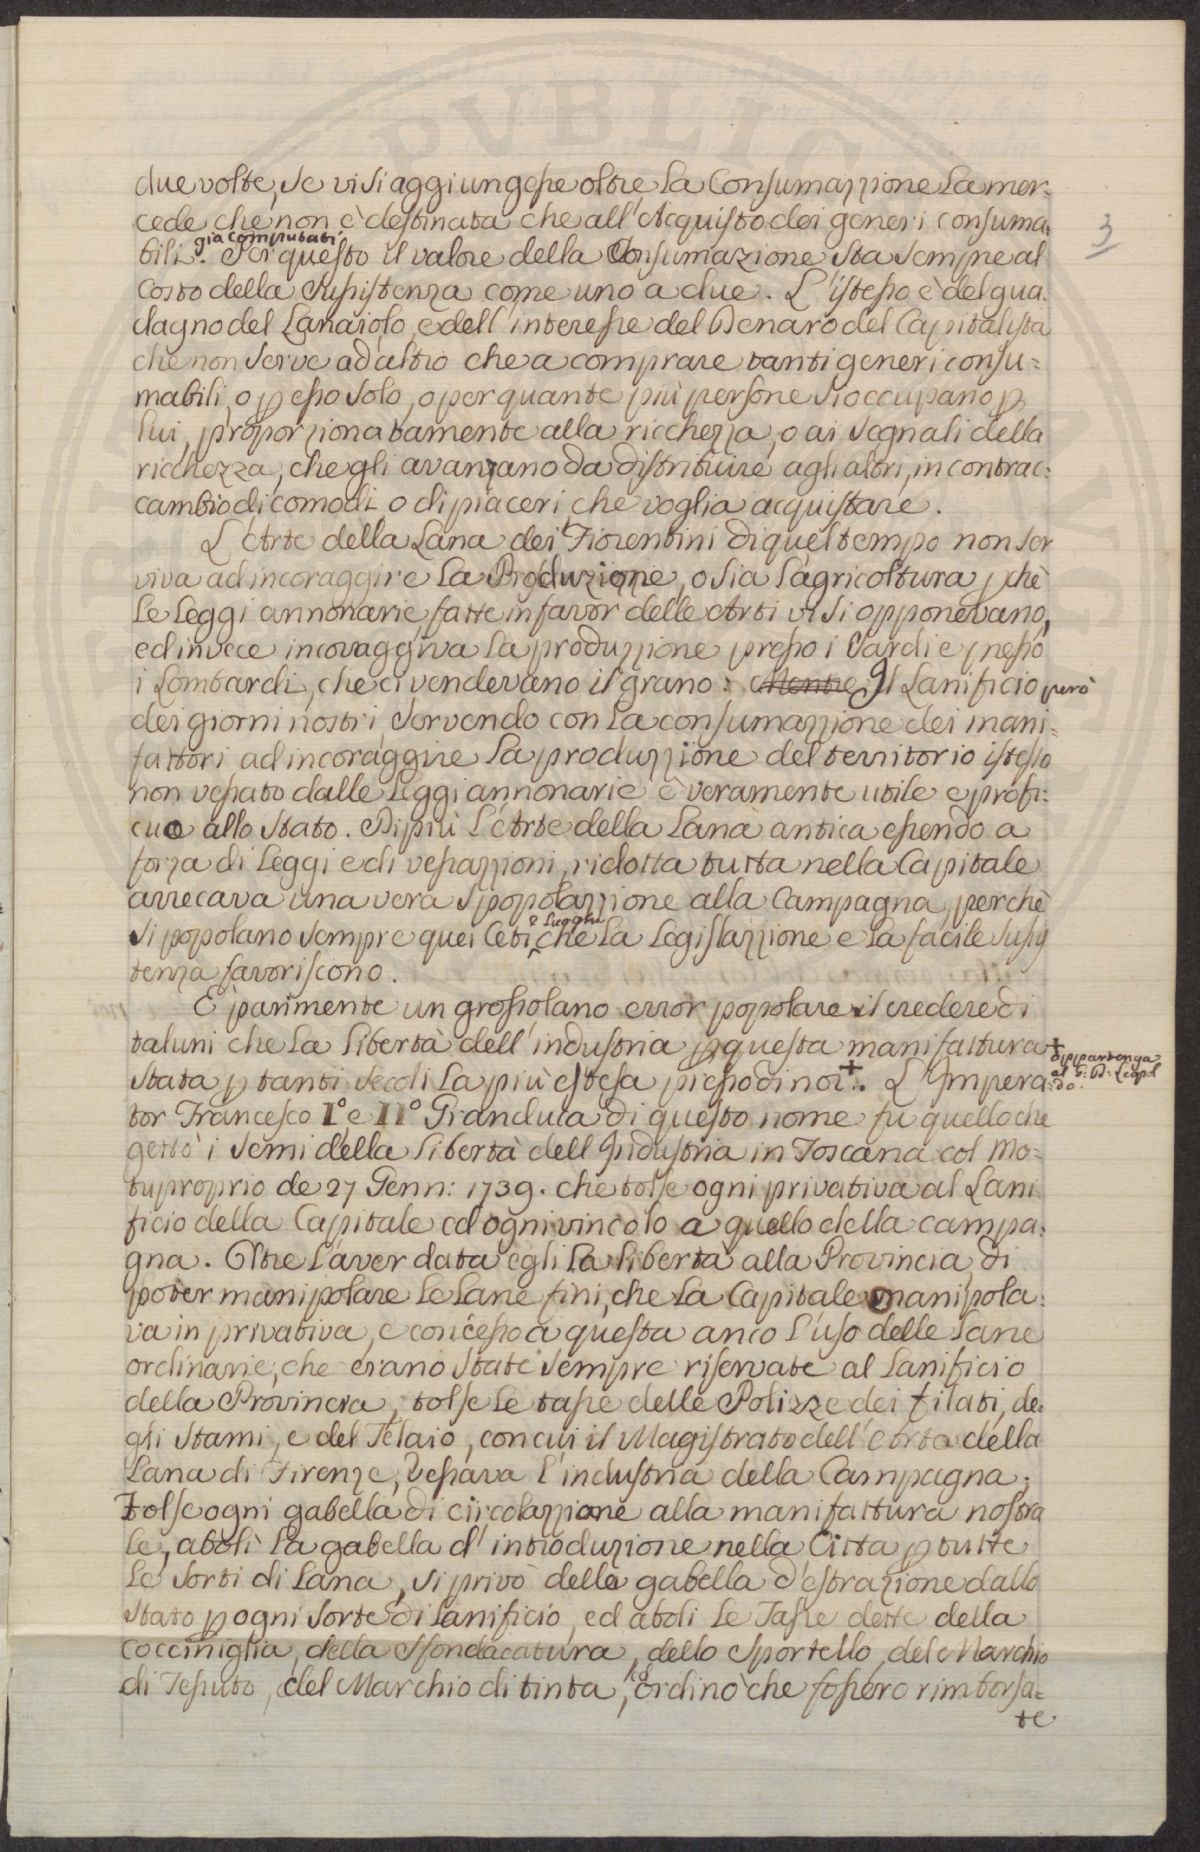 3
due volte, se vi si aggiungesse oltre la Consumazzione la mer:
cede che non è destinata che all'Acquisto dei generi consuma:
già computati
bili. Per questo il valore della Consumazione sta sempre al
costo della sussistenza come uno a due. L'istesso è del gua:
dagno del Lanaiolo, e dell'interesse del Denaro del Capitalista
che non serve ad altro che a comprare tanti generi consu=
mabili, o p esso solo, o per quante più persone si occupano p
lui, proporzionatamente alla ricchezza, o ai segnali della
ricchezza, che gli avanzano da distribuire agli altri, in contrac:
cambio di comodi o di piaceri, che voglia acquistare.
L'Arte della Lana dei Fiorentini di quel tempo non ser
viva ad incoraggire la Produzzione, o sia l'agricoltura pchè
le Leggi annonarie fatte in favor delle Arti vi si opponevano,
ed invece incoraggiva la produzzione presso i Sardi e presso
i Lombardi, che ci vendevano il grano: Mentre Il Lanificio però
dei giorni nostri, servendo con la consumazzione dei mani=
fattori ad incoraggire la produzzione del territorio istesso
non vessato dalle Leggi annonarie è veramente utile e profi:
cuo allo Stato. Di più l'Arte della Lana antica essendo a
forza di Leggi e di vessazzioni, ridotta tutta nella Capitale
arrecava una vera spopolazzione alla Campagna, perchè
e Luoghi
si popolano sempre quei Ceti che la Legislazzione e la facile sussis
tenza favoriscono.
È parimente un grossolano error popolare il credere di
taluni che la libertà dell'industria p questa manifattura
stata p tanti secoli la più estesa presso di noi +. L'Impera:
+ appartenga
al G: D: Leopol
do.
tor Francesco I° e II° Granduca di questo nome fu quello che
gettò i semi della libertà dell'Industria in Toscana col Mo=
tuproprio de 27 Genn: 1739. che tolse ogni privativa al Lani
ficio della Capitale ed ogni vincolo a quello della campa:
gna. Oltre l'aver data egli la libertà alla Provincia, di
poter manipolare le Lane fini, che la Capitale manipola:
va in privativa, e concesso a questa anco l'uso delle Lane
ordinarie, che erano state sempre riservate al Lanificio
della Provincia, tolse le tasse delle Polizze dei filati, de:
gli stami, e del Telaio, con cui il Magistrato dell'Arte della
Lana di Firenze, vessava l'industria della Campagna;
Tolse ogni gabella di circolazzione alla manifattura nostra
le, abolì la gabella d'introduzione nella Città p tutte
le sorti di Lana, si privò della gabella d'estrazione dallo
Stato p ogni sorte di Lanificio, ed abolì le Tasse dette della
Cocciniglia, della Sfondacatura, dello Sportello, del Marchio
di Tessuto, del Marchio di tinta, ed ordinò che fossero rimborsa=
te